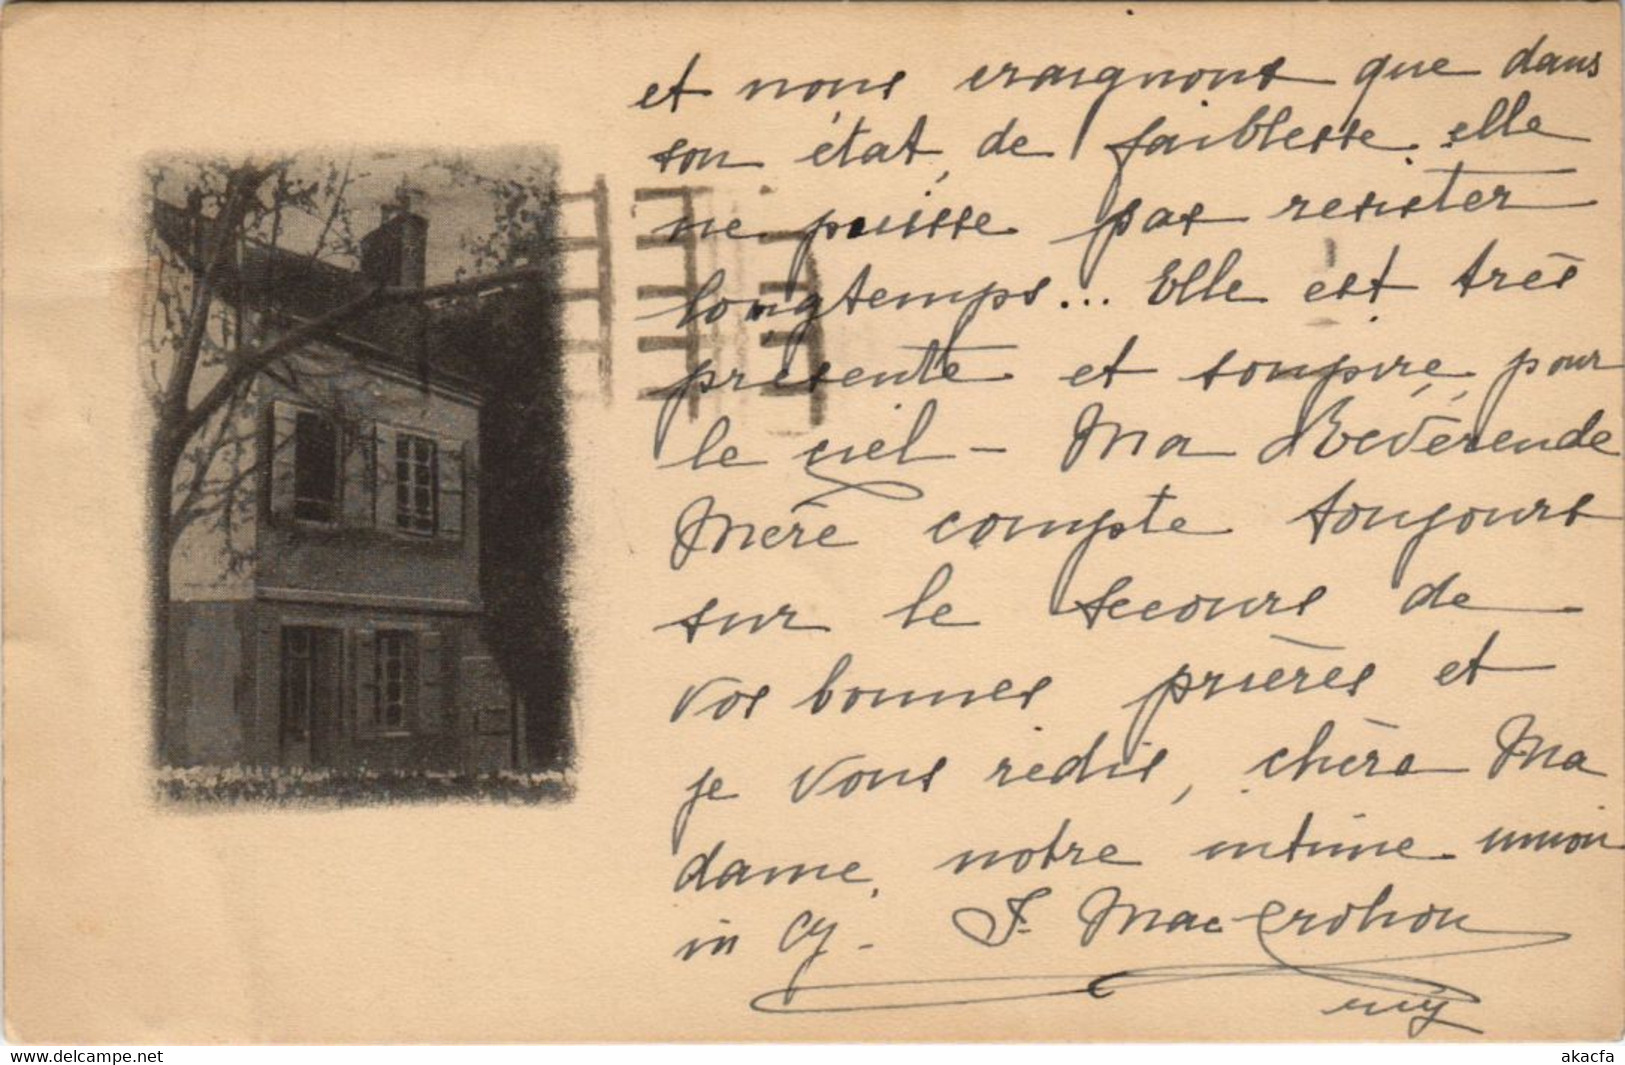 et nous craignons que dans
son état de faiblesse elle
ne puisse pas resister
longtemps... Elle est très
présente et soupire pour
le ciel - Ma Révérende
Mère compte toujours
sur le secours de
vos bonnes prières et
je vous redis, chère Ma
dame, notre intime union
in
www.delcampe.net
akacfa